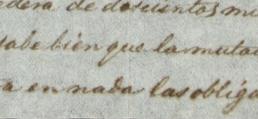 edera de doscientos mi
sabe bien que la muta
a en nada las obliga